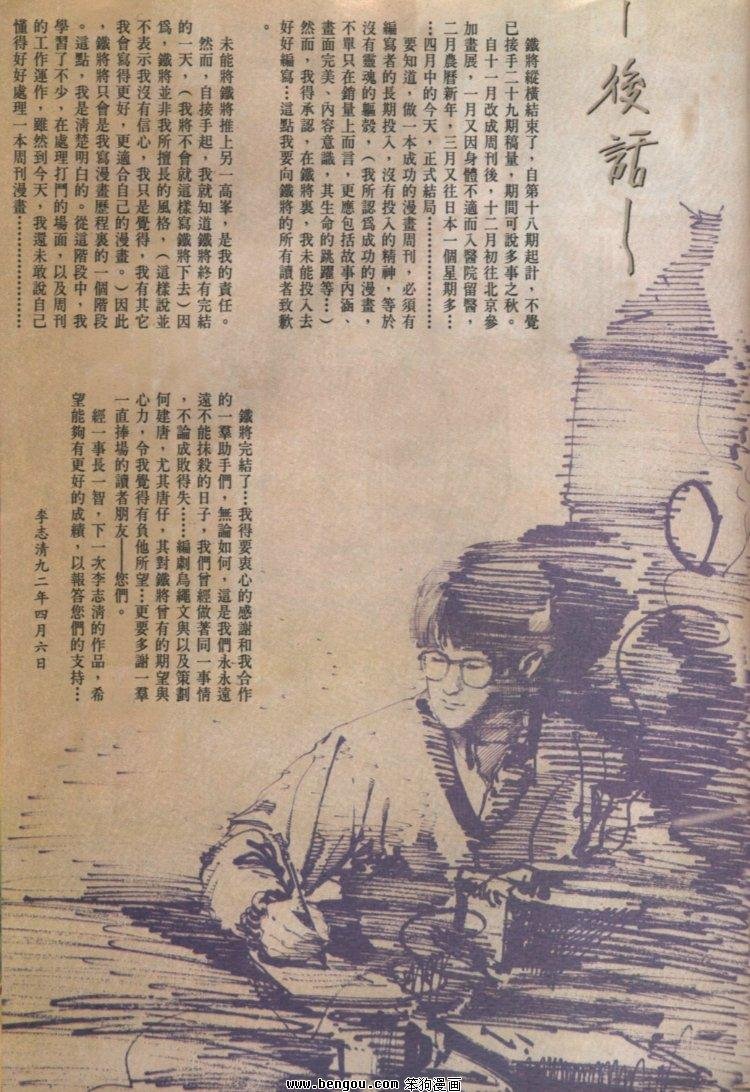 後話
鐵將縱橫結束了，自第十八期起計，不覺
已接手二十九期稿量，期間可說多事之秋。
自十一月改成周刊後，十二月初往北京參
加畫展，一月又因身體不適而入醫院留醫，
二月農曆新年，三月又往日本一個星期多…
…四月中的今天，正式結局………………
要知道，做一本成功的漫畫周刊，必須有
編寫者的長期投入，沒有投入的精神，等於
沒有靈魂的軀殼，（我所認爲成功的漫畫，
不單只在銷量上而言，更應包括故事內涵、
畫面完美、內容意識，其生命的跳躍等…）
然而，我得承認，在鐵將裏，我未能投入去
好好編寫…這點我要向鐵將的所有讀者致歉
。
未能將鐵將推上另一高峯，是我的責任。
然而，自接手起，我就知道鐵將終有完結
的一天，（我將不會就這樣寫鐵將下去）因
爲，鐵將並非我所擅長的風格，（這樣說並
不表示我沒有信心，我只是覺得，我有其它
我會寫得更好，更適合自己的漫畫。）因此
，鐵將將只會是我寫漫畫歷程裏的一個階段
。這點，我是清楚明白的。從這階段中，我
學習了不少，在處理打鬥的場面，以及周刊
的工作運作，雖然到今天，我還未敢說自己
懂得好好處理一本周刊漫畫………………
鐵將完結了…我得要衷心的感謝和我合作
的一羣助手們，無論如何，這是我們永永遠
遠不能抹殺的日子，我們曾經做著同一事情
，不論成敗得失……編劇烏繩文與以及策劃
何建唐，尤其唐仔，其對鐵將曾有的期望與
心力，令我覺得有負他所望…更要多謝一羣
一直捧場的讀者朋友——您們。
經一事長一智，下一次李志清的作品，希
望能夠有更好的成績，以報答您們的支持…
李志清九二年四月六日
www.bengou.com 笨狗漫画